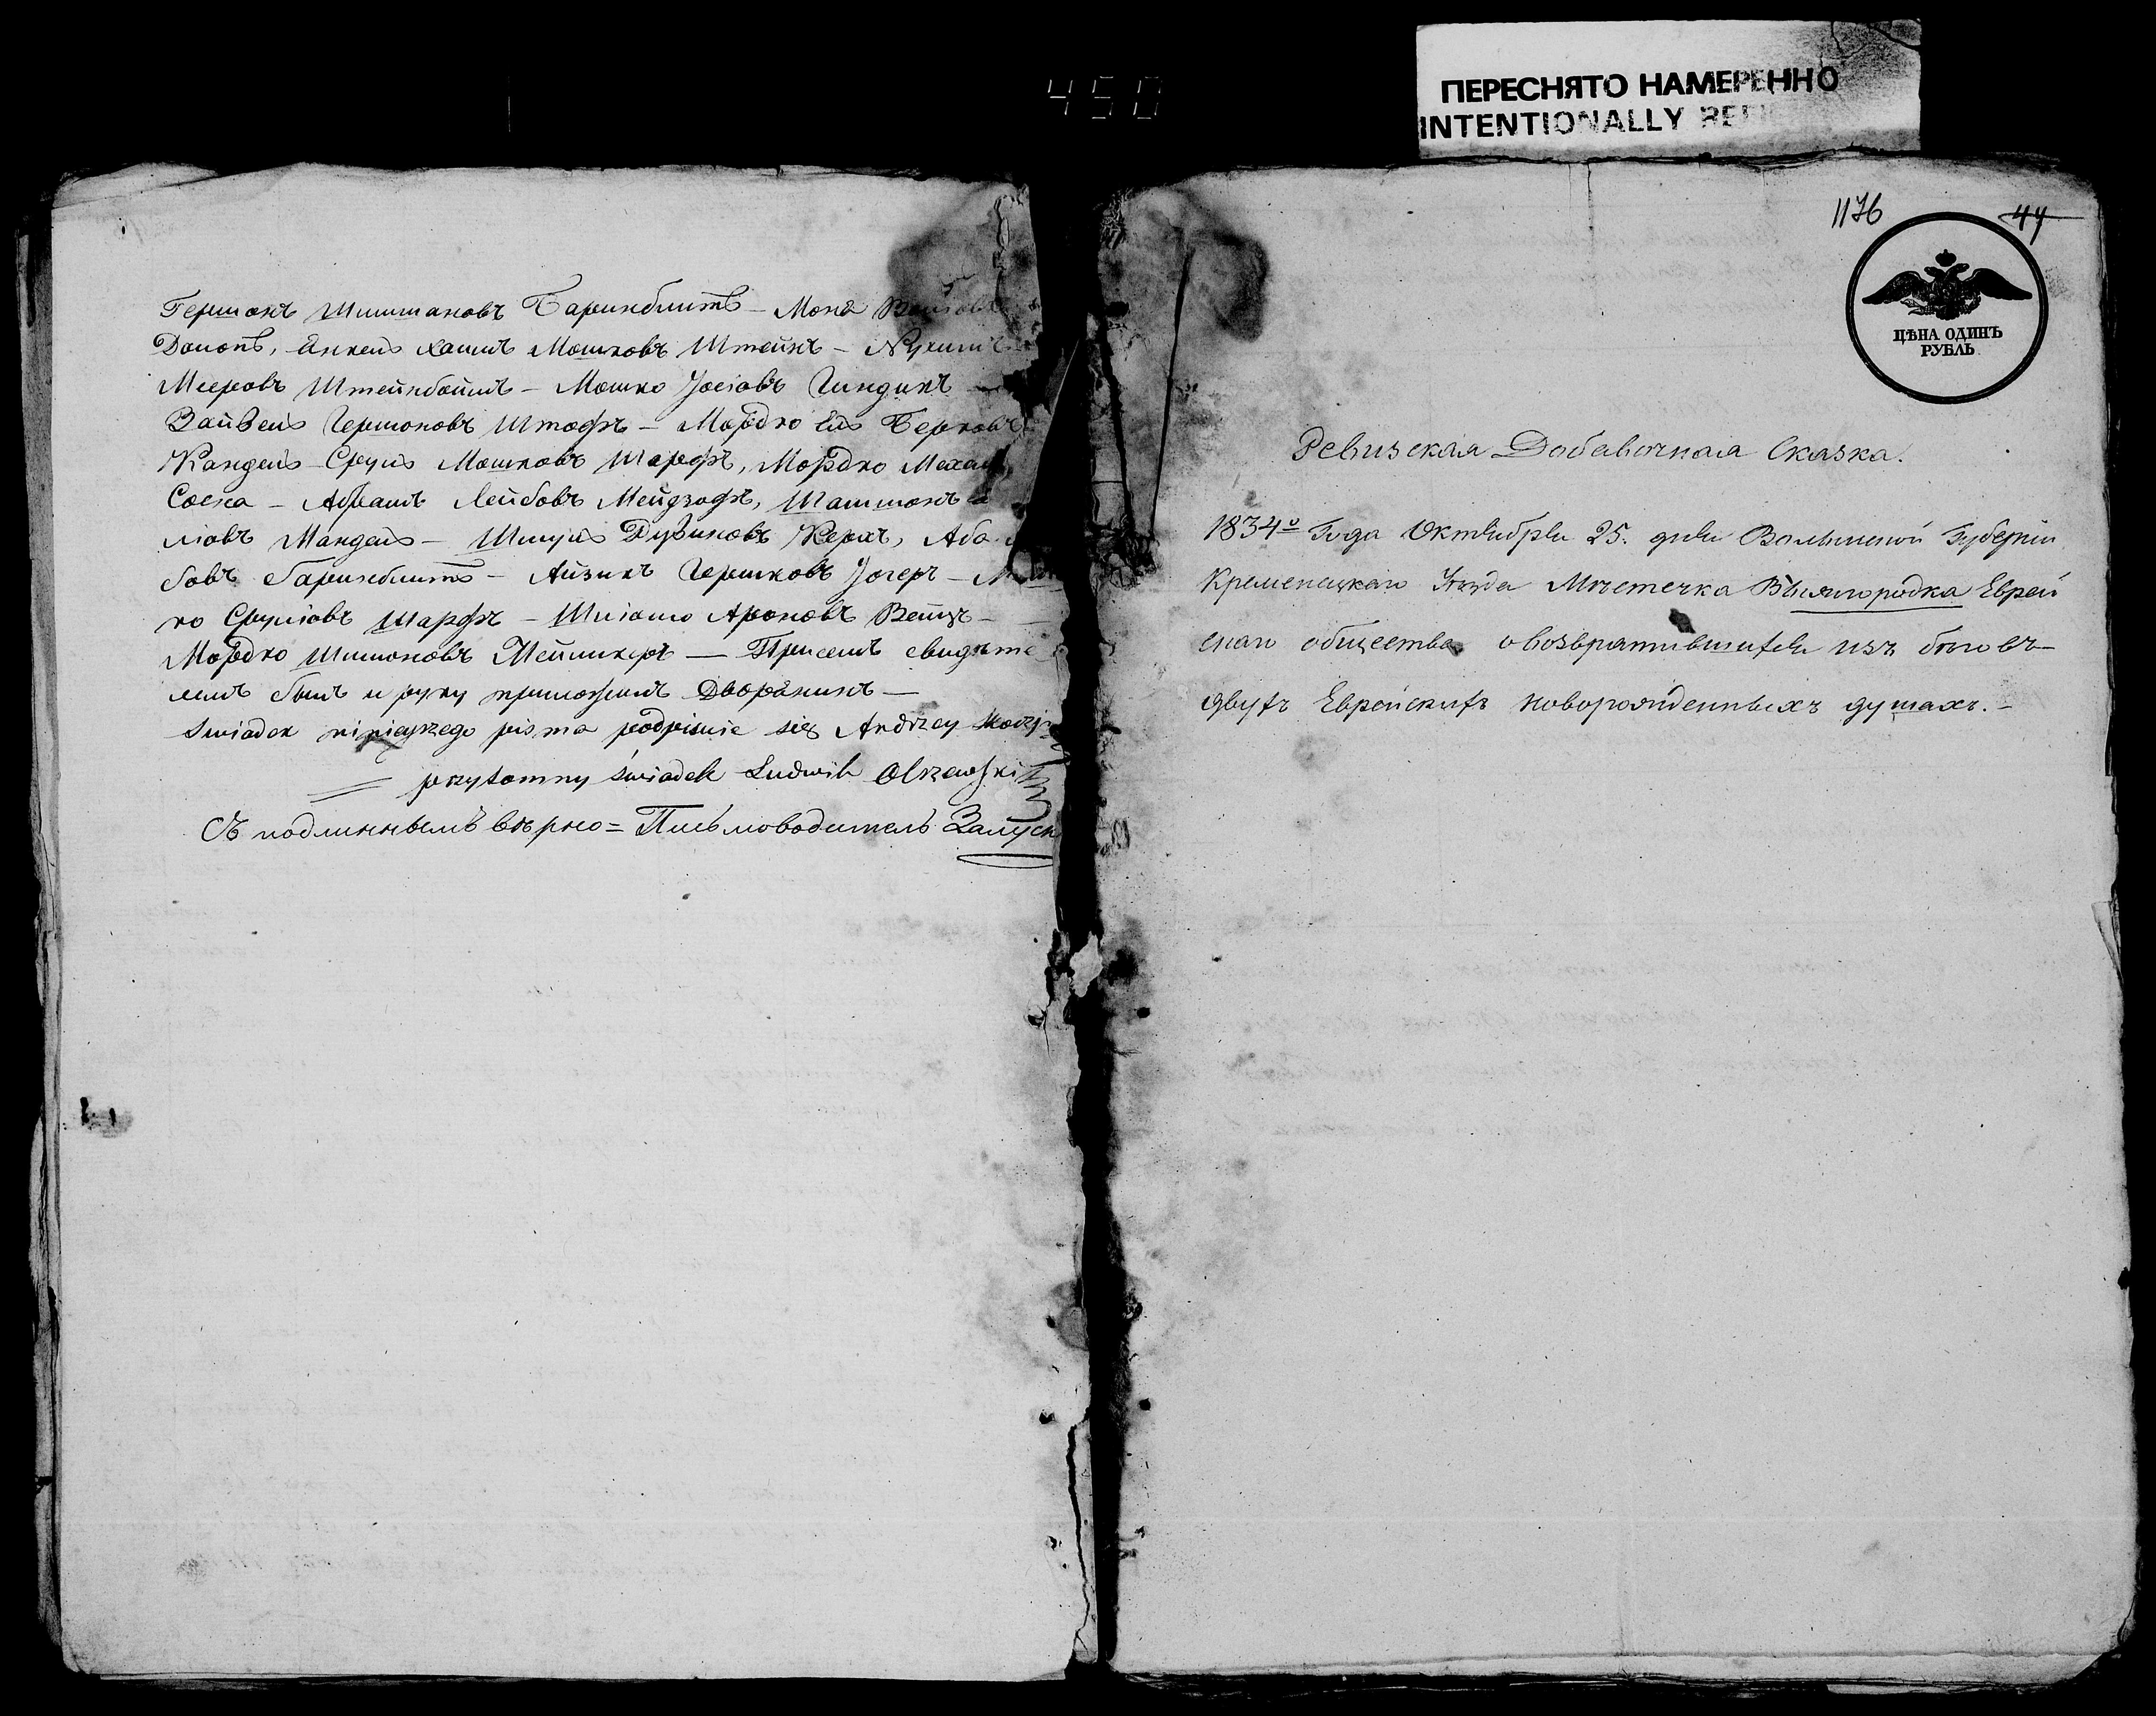 450
ПЕРЕСНЯТО НАМЕРЕННО
INTENTIONALLY
Гершонъ Шимшановъ Баринблитъ – Мона
Долопъ, Янкель Хаимъ Мошковъ Штейнъ – Нухимъ
Мееровъ Штейнбоймъ – Мошко Јосіовъ Гиндикъ –
Вайвель Гершоновъ Штофъ – Мордко Ель Берковъ
Кандель – Сруль Мошковъ Шарфъ, Мордко
Сосна – Абрамъ Лейбовъ Мейдзофъ, Шаншонъ
ліовъ Мандель – Шмуль Дувиновъ Керхъ,
бовъ Баринблитъ – Айзикъ Гершковъ Јогеръ –
ко Сруліовъ Шарфъ – Шліомо Ароновъ Вейцъ –
Мордко Шимоновъ Мейликеръ — При семъ свидѣте
лемъ былъ и руку приложилъ Дворянинъ —
Swiadek ninieyszego pisma podpisuie się Andrzey
= przytomny świadek Ludwik Olszewski
Съ подлиннымъ вѣрно = Письмоводитель Залуск
1176 44
ЦѢНА ОДИНЪ
РУБЛЬ
Ревизская Добавочная Сказка.
1834го Года Октября 25. дня Волынской Губерніи
Кременецкаго Уѣзда Мѣстечка Вышгородка Еврей
скаго общества о возвратившихся изъ бѣговъ
двухъ Еврейскихъ новорожденныхъ душахъ. –